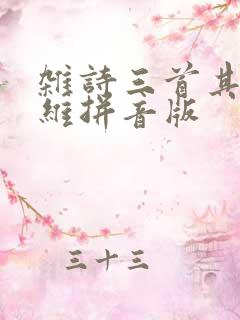 雜詩三首其
維拼音版
三十三